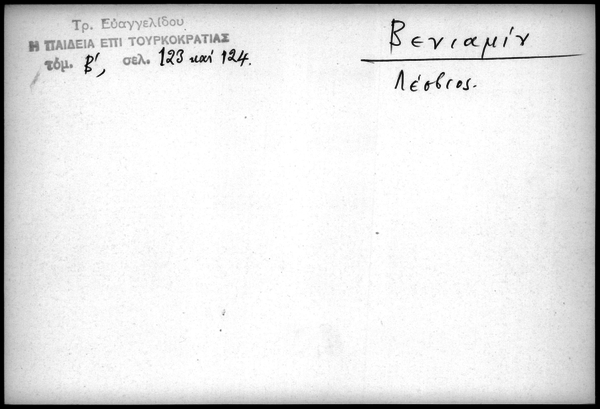 Τρ. Εὐαγγελίδου
Η ΠΑΙΔΕΙΑ ΕΠΙ ΤΟΥΡΚΟΚΡΑΤΙΑΣ
τόμ. β΄, σελ. 123 καί 124.
Βενιαμίν
Λέσβιος.